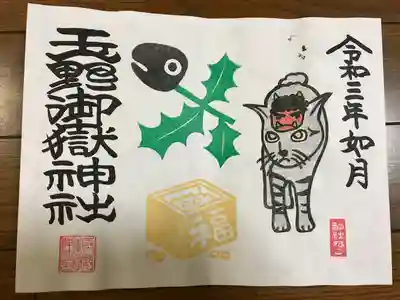 令和三年如月
福
玉野御嶽神社